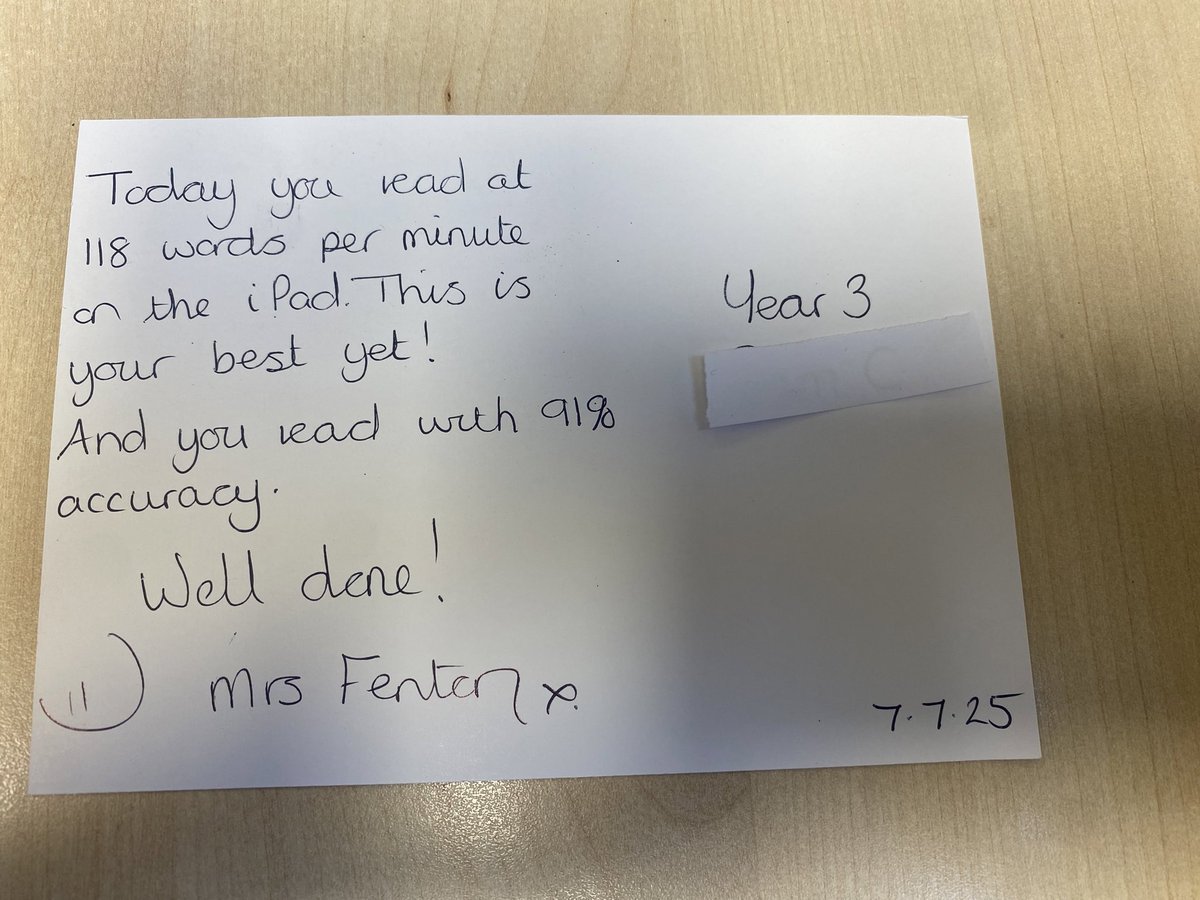 Today you read at
118 words per minute
on the iPad. This is
your best yet!
And you read with 91%
accuracy.
Well done!
Mrs Fenton x.
Year 3
7.7.25